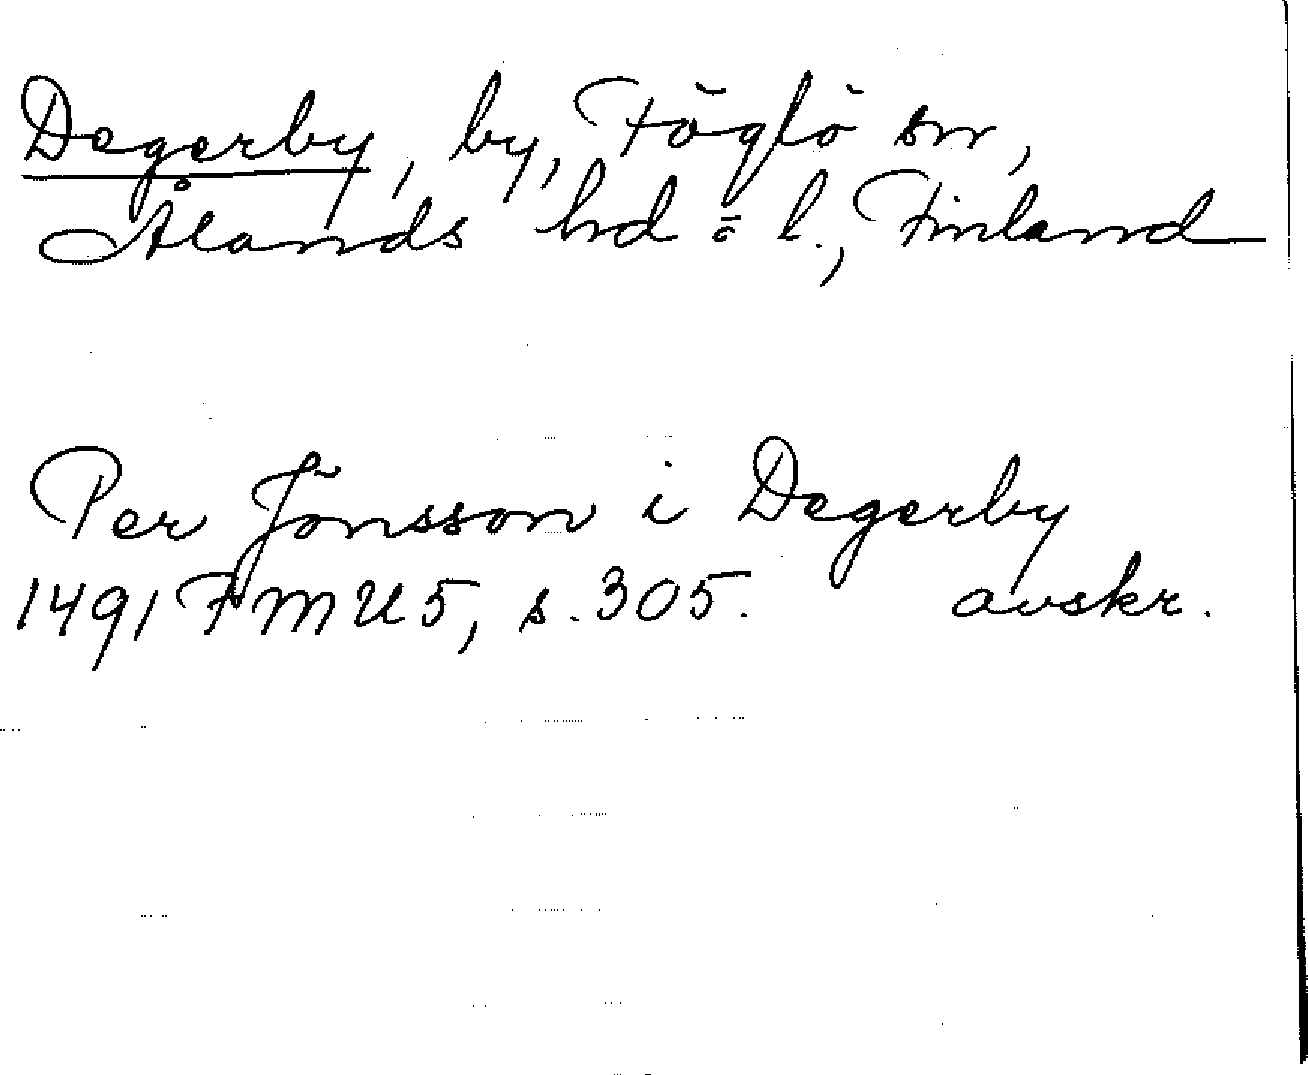 Degerby, by, Föglö sn,
Ålands hd o l., Finland
Per Jönsson i Degerby
1491 FMU 5, s. 305. avskr.